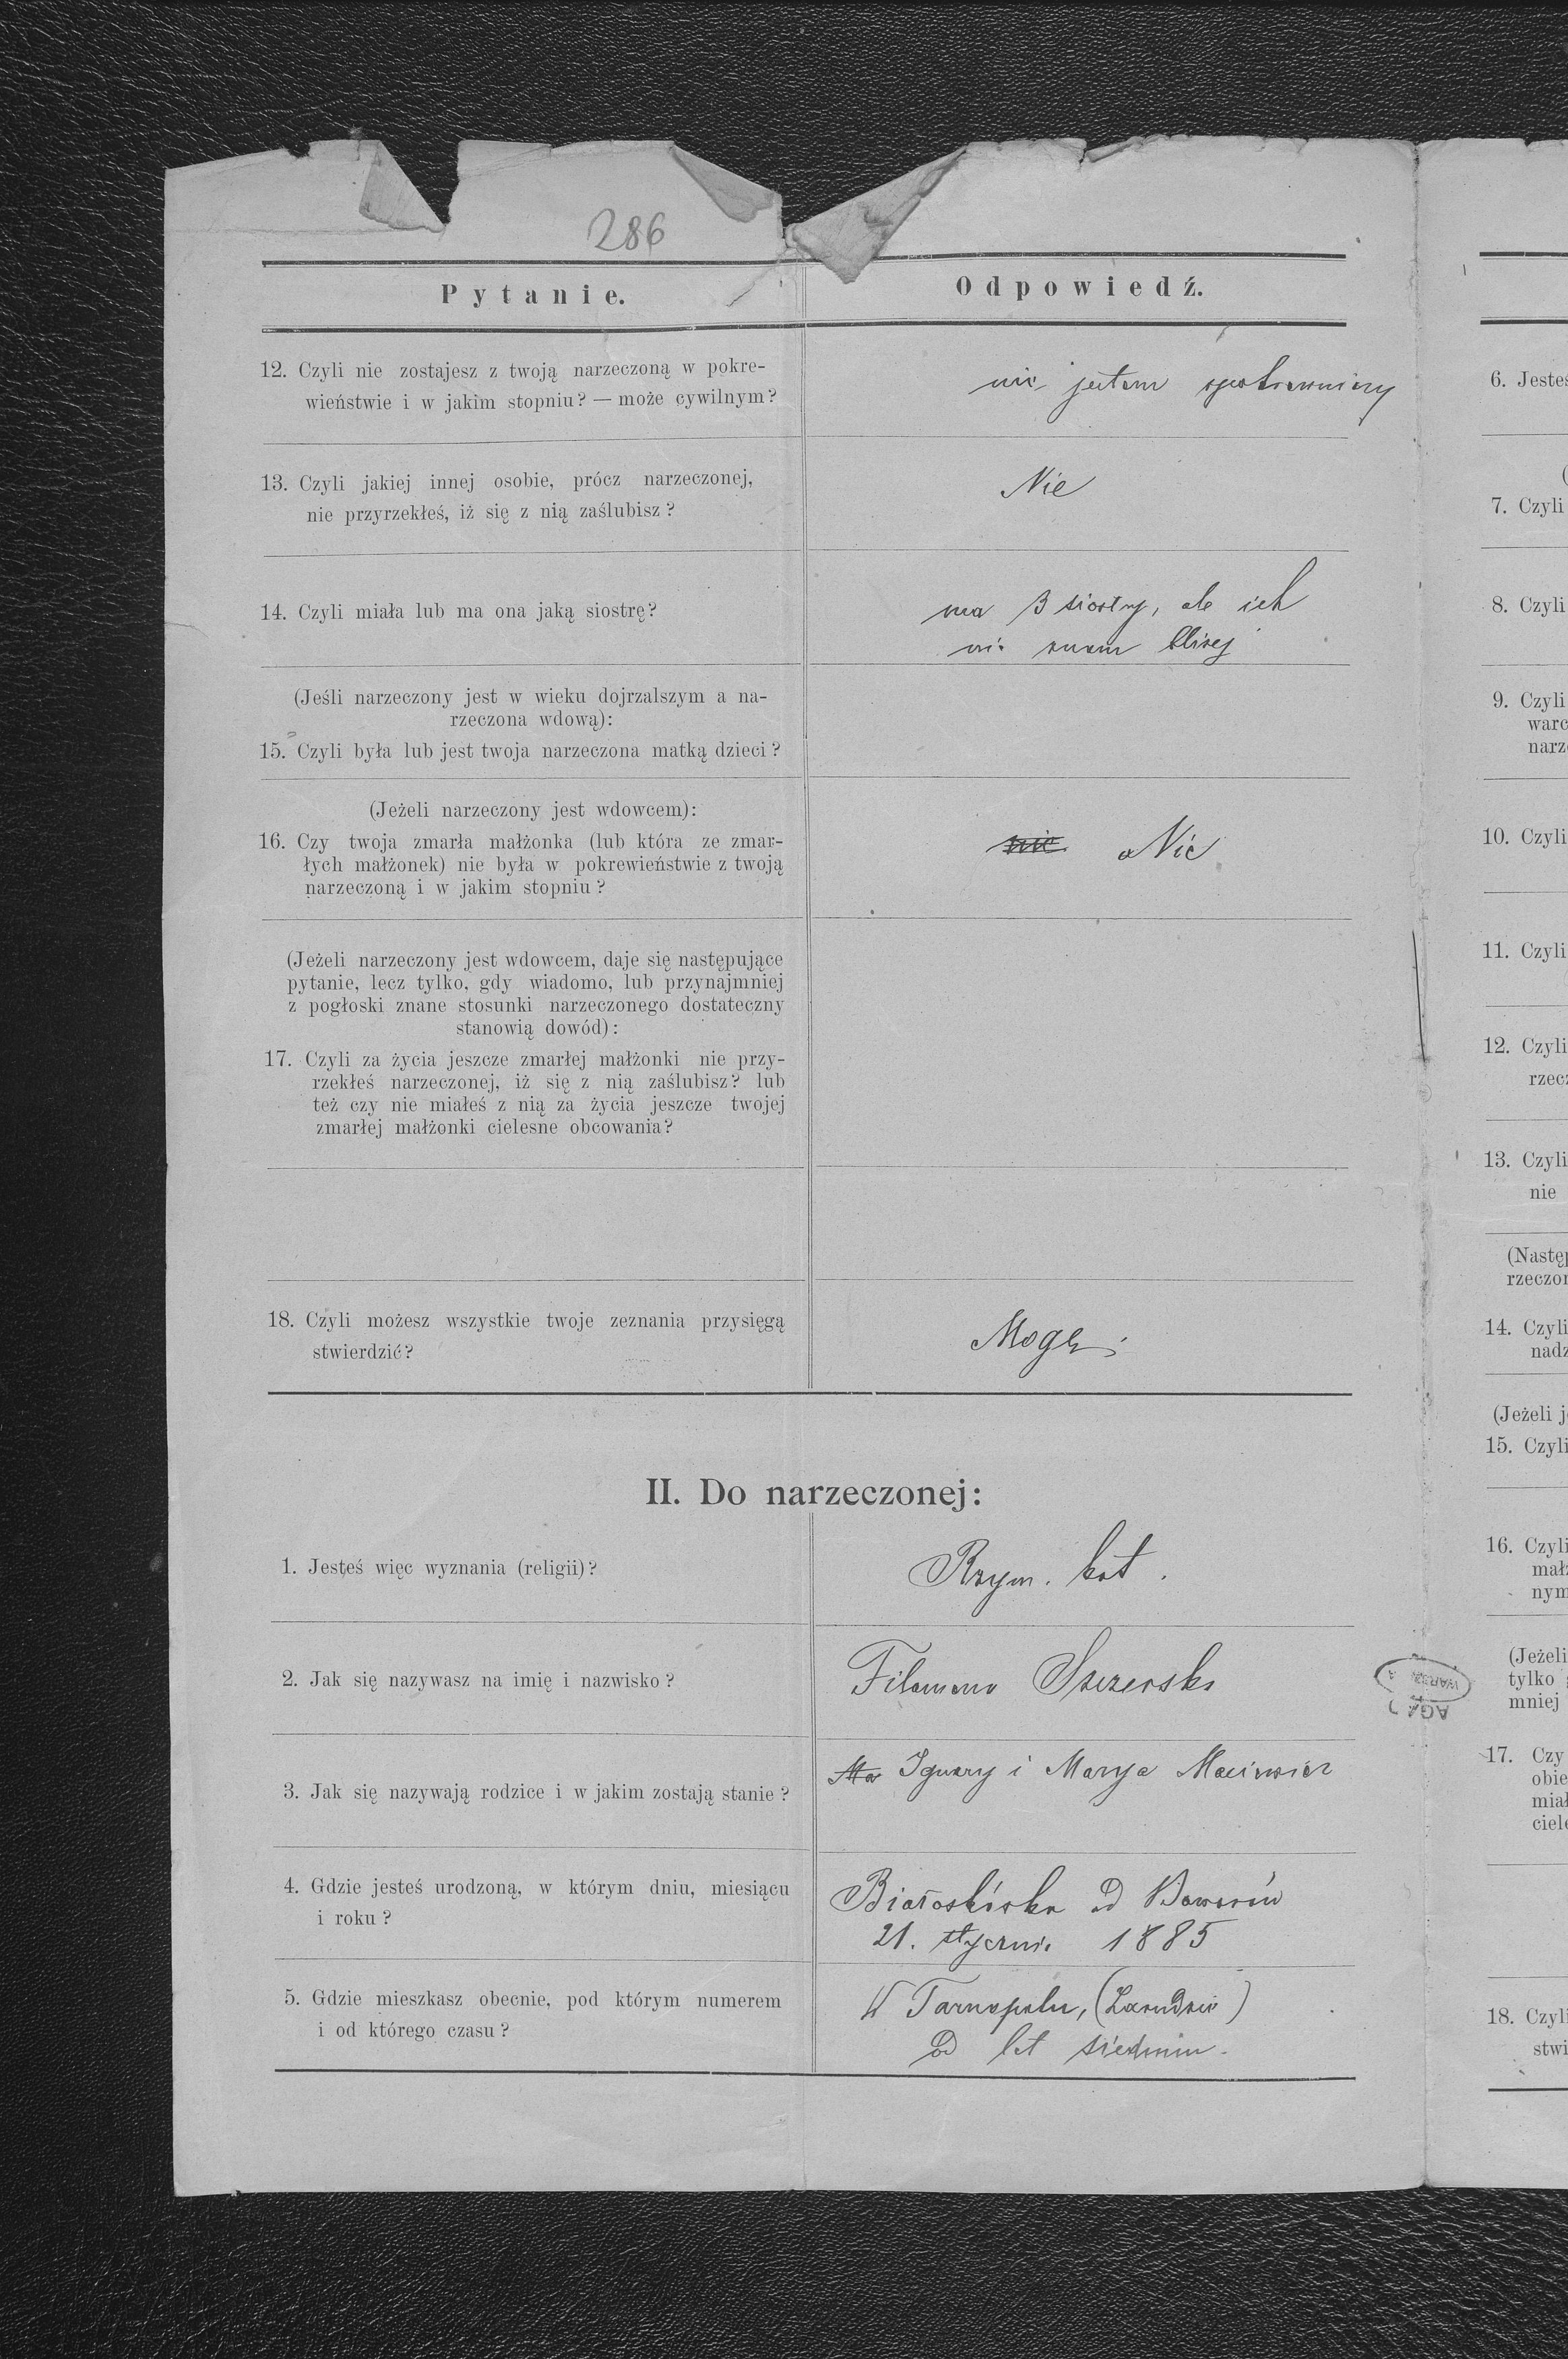 286
Pytanie. Odpowiedź.
12. Czyli nie zostajesz z twoją narzeczoną w pokre-
wieństwie i w jakim stopniu? — może cywilnym?
nie jestem spokrewniony
13. Czyli jakiej innej osobie, prócz narzeczonej,
nie przyrzekłeś, iż się z nią zaślubisz?
Nie
14. Czyli miała lub ma ona jaką siostrę?
ma 3 siostry, ale ich
nie znam bliżej
(Jeśli narzeczony jest w wieku dojrzalszym a na-
rzeczona wdową):
15. Czyli była lub jest twoja narzeczona matką dzieci?
(Jeżeli narzeczony jest wdowcem):
16. Czy twoja zmarła małżonka (lub która ze zmar-
łych małżonek) nie była w pokrewieństwie z twoją
narzeczoną i w jakim stopniu?
nie Nie
(Jeżeli narzeczony jest wdowcem, daje się następujące
pytanie, lecz tylko, gdy wiadomo, lub przynajmniej
z pogłoski znane stosunki narzeczonego dostateczny
stanowią dowód):
17. Czyli za życia jeszcze zmarłej małżonki nie przy-
rzekłeś narzeczonej, iż się z nią zaślubisz? lub
też czy nie miałeś z nią za życia jeszcze twojej
zmarłej małżonki cielesne obcowania?
18. Czyli możesz wszystkie twoje zeznania przysięgą
stwierdzić?
Mogę
II. Do narzeczonej:
1. Jesteś więc wyznania (religii)?
Rzym. kat.
2. Jak się nazywasz na imię i nazwisko?
3. Jak się nazywają rodzice i w jakim zostają stanie?
Ma Ignacy i Marya
4. Gdzie jesteś urodzoną, w którym dniu, miesiącu
i roku?
Białoskórka
21. stycznia 1885
5. Gdzie mieszkasz obecnie, pod którym numerem
i od którego czasu?
W Tarnopolu,
od lat siedmiu.
6. Jesteś
7. Czyli
8. Czyli
9. Czyli
warc
narz
10. Czyli
11. Czyli
12. Czyli
rzecz
13. Czyli
nie
(Następ
rzeczon
14. Czyli
nadz
(Jeżeli j
15. Czyli
16. Czyli
małż
nym
(Jeżeli
tylko
mniej
17. Czy
obie
miał
ciele
18. Czyli
stwi
AGAD